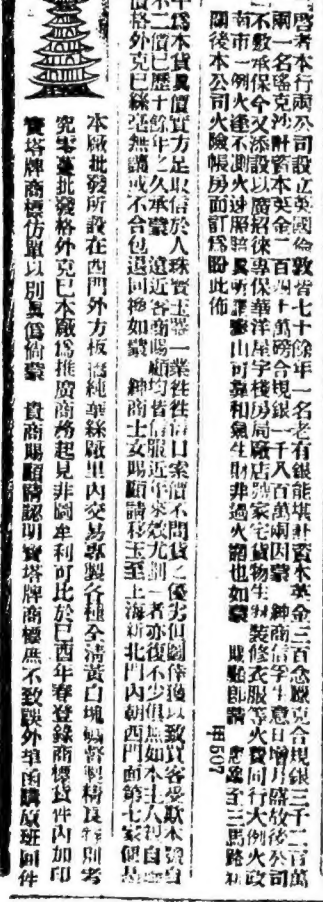 啓者本行兩公司設立英國倫敦皆七十餘年一名老有銀能堪計資本英金三百念 克合規銀三千二百萬
兩一名 克沙計資本英金二百四十萬磅合規銀一千八百萬兩因蒙 紳商信孚生意日增月盛故後公司
不敷承保今又添設以廣招徠專保華洋屋宇棧房局廠店號家宅貨物生財裝修衣服等火費同行大例火政
南市一例火逢不測火速照賠 山可靠和氣生財非過火 也如蒙 賜 卽請 三馬路
關後本公司火險帳房面訂爲盼此佈
甲507
年爲本貨眞價實方足取信於人珠寶玉器一業往往信口索價不問貨之優劣但圖 以致買客受欺本 自
不二價已歷十餘年之久承蒙 遠近各商賜顧均皆信服近年來效尤 者亦復不少 如本主人
價格外克己絲毫無 或不合包退回換如蒙 紳商士女賜顧請移玉至上海新北門內朝西門面第七家便是
本廠批發所設在西門外方板橋純華絲廠里內交易專製各種全清黃白塊碱督製精良特別考
究零躉批發格外克己本廠爲推廣商務起見非圖牟利可比於己酉年春登錄商標貨件內加印
寶塔牌商標仿單以別眞僞倘蒙 貴商賜顧請認明寶塔牌商標庶不致誤外埠函購原班回件